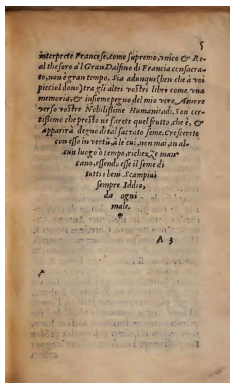 5
interprete Francese, come supremo, vnico & Re-
al thesoro à'l Gran Dalfino di Francia consacra-
to, non è gran tempo. Sia adunque (ben che à voi
picciol dono) tra gli altri vostri libri come vna
memoria, & insieme pegno del mio vero, Amore
verso vostre Nobilissime Humanitadi. Son cer-
tissimo che presto ne farete quel frutto, che è, &
apparirà degno di tal sacrato seme. Crescerete
con esso in vertù, à le cui, non mai, in al-
cun luogo ò tempo, richezze man-
cano, essendo esse il seme di
tutti i beni. Scampiui
sempre Iddio,
da ogni
male.
A 3